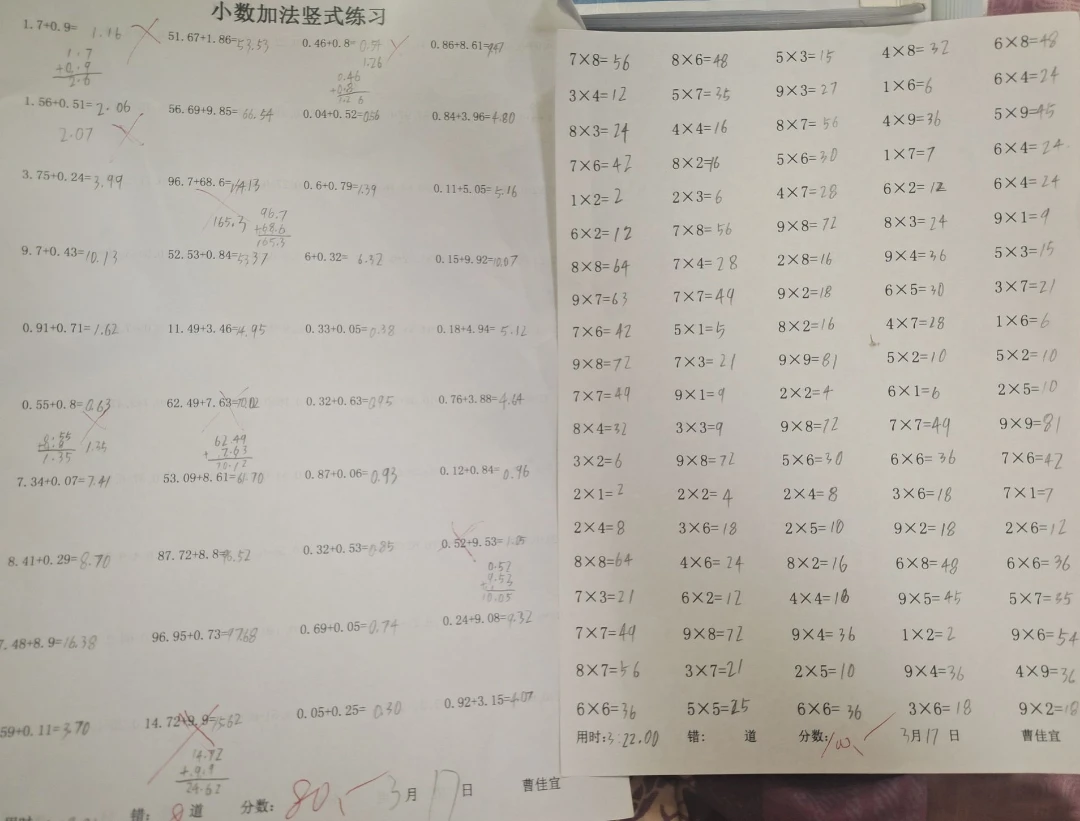 小数加法竖式练习
1.7+0.9= 1.16 51.67+1.86=53.53 0.46+0.8=0.54 0.86+8.61=9.47
1.7 1.26
+0.9 0.46
2.6 +0.8
1.26
1.56+0.51=2.06 56.69+9.85=66.54 0.04+0.52=0.56 0.84+3.96=4.80
2.07
3.75+0.24=3.99 96.7+68.6= 0.6+0.79=1.39 0.11+5.05=5.16
165.3 96.7
+68.6
165.3
9.7+0.43=10.13 52.53+0.84=53.37 6+0.32= 6.32 0.15+9.92=10.07
0.91+0.71=1.62 11.49+3.46=14.95 0.33+0.05=0.38 0.18+4.94=5.12
0.55+0.8=0.63 62.49+7.63= 0.32+0.63=0.95 0.76+3.88=4.64
0.55 62.49
+0.8 1.35 + 7.63
1.35 70.12
7.34+0.07=7.41 53.09+8.61=61.70 0.87+0.06=0.93 0.12+0.84=0.96
8.41+0.29=8.70 87.72+8.8=96.52 0.32+0.53=0.85 0.52+9.53=
0.52
+9.53
10.05
7.48+8.9=16.38 96.95+0.73=97.68 0.69+0.05=0.74 0.24+9.08=9.32
59+0.11=3.70 14.72+9.9= 0.05+0.25=0.30 0.92+3.15=4.07
14.72
+9.9
24.62
用时: 错: 8 道 分数: 80 3月17日 曹佳宜
7×8=56 8×6=48 5×3=15 4×8=32 6×8=48
3×4=12 5×7=35 9×3=27 1×6=6 6×4=24
8×3=24 4×4=16 8×7=56 4×9=36 5×9=45
7×6=42 8×2=16 5×6=30 1×7=7 6×4=24
1×2=2 2×3=6 4×7=28 6×2=12 6×4=24
6×2=12 7×8=56 9×8=72 8×3=24 9×1=9
8×8=64 7×4=28 2×8=16 9×4=36 5×3=15
9×7=63 7×7=49 9×2=18 6×5=30 3×7=21
7×6=42 5×1=5 8×2=16 4×7=28 1×6=6
9×8=72 7×3=21 9×9=81 5×2=10 5×2=10
7×7=49 9×1=9 2×2=4 6×1=6 2×5=10
8×4=32 3×3=9 9×8=72 7×7=49 9×9=81
3×2=6 9×8=72 5×6=30 6×6=36 7×6=42
2×1=2 2×2=4 2×4=8 3×6=18 7×1=7
2×4=8 3×6=18 2×5=10 9×2=18 2×6=12
8×8=64 4×6=24 8×2=16 6×8=48 6×6=36
7×3=21 6×2=12 4×4=16 9×5=45 5×7=35
7×7=49 9×8=72 9×4=36 1×2=2 9×6=54
8×7=56 3×7=21 2×5=10 9×4=36 4×9=36
6×6=36 5×5=25 6×6=36 3×6=18 9×2=18
用时:3:22.00 错: 道 分数:100 3月17日 曹佳宜